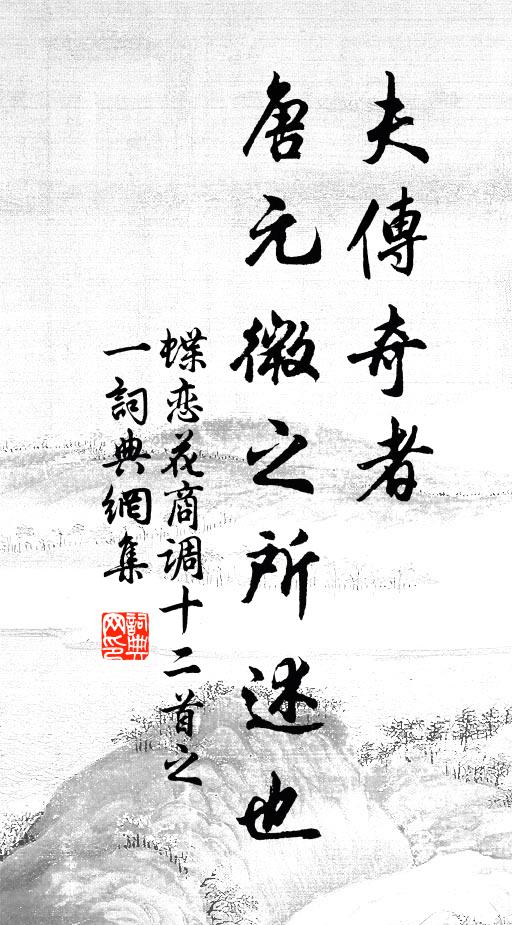 夫傳奇者
唐元微之所述也
蝶恋花商调十二首之
一詞典網集
詞典
网印